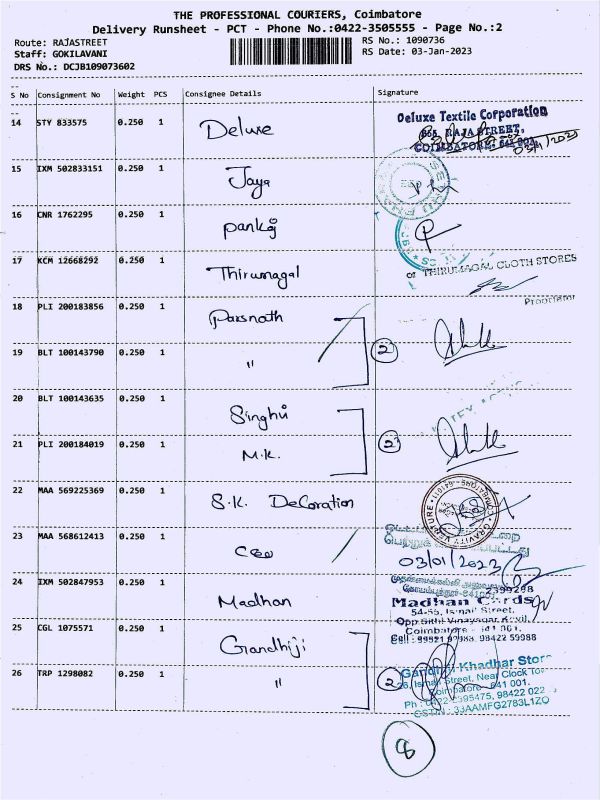 THE PROFESSIONAL COURIERS, Coimbatore
Delivery Runsheet - PCT - Phone No.:0422-3505555 - Page No.:2
Route: RAJASTREET
RS No.: 1090736
Staff: GOKILAVANI
RS Date: 03-Jan-2023
DRS No.: DCJB109073602
S No Consignment No Weight PCS Consignee Details Signature
14 STY 833575 0.250 1 Deluxe
Deluxe Textile Corporation
RAJA STREET,
COIMBATORE, 641 001
03/1/2023
15 IXM 502833151 0.250 1 Jaya
16 CNR 1762295 0.250 1 Pankaj
17 KCM 12668292 0.250 1 Thirumagal
THIRUMAGAL CLOTH STORES
Proprietor
18 PLI 200183856 0.250 1 Parsnath
19 BLT 100143790 0.250 1 "
2
20 BLT 100143635 0.250 1 Singhvi
21 PLI 200184019 0.250 1 M.K.
2
22 MAA 569225369 0.250 1 S.K. Decoration
GRAVITY VENTURE
23 MAA 568612413 0.250 1
03/01/2023
2399298
24 IXM 502847953 0.250 1 Madhan
Madhan Cards
54-55, Ismail Street,
Opp Sithi Vinayagar Kovil,
Coimbatore - 641 001.
98422 59988
25 CGL 1075571 0.250 1 Gandhiji
26 TRP 1298082 0.250 1 "
2
Gandhi Khadhar Store
Street, Near Clock Tow
Coimbatore - 641 001.
Ph : 0422-2395475, 98422 022
GSTIN : 33AAMFG2783L1ZO
8